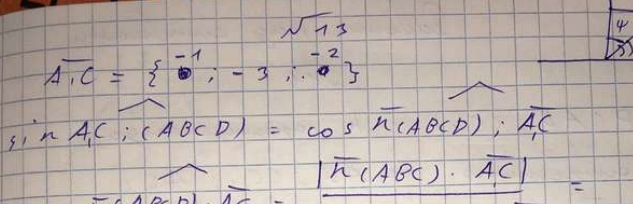 √13
A₁C = { -1 ; -3 ; -2 }
sin A₁C ; (ABCD) = cos n(ABCD) ; A₁C
|n(ABC) · A₁C| =
(ABCD) A₁C =